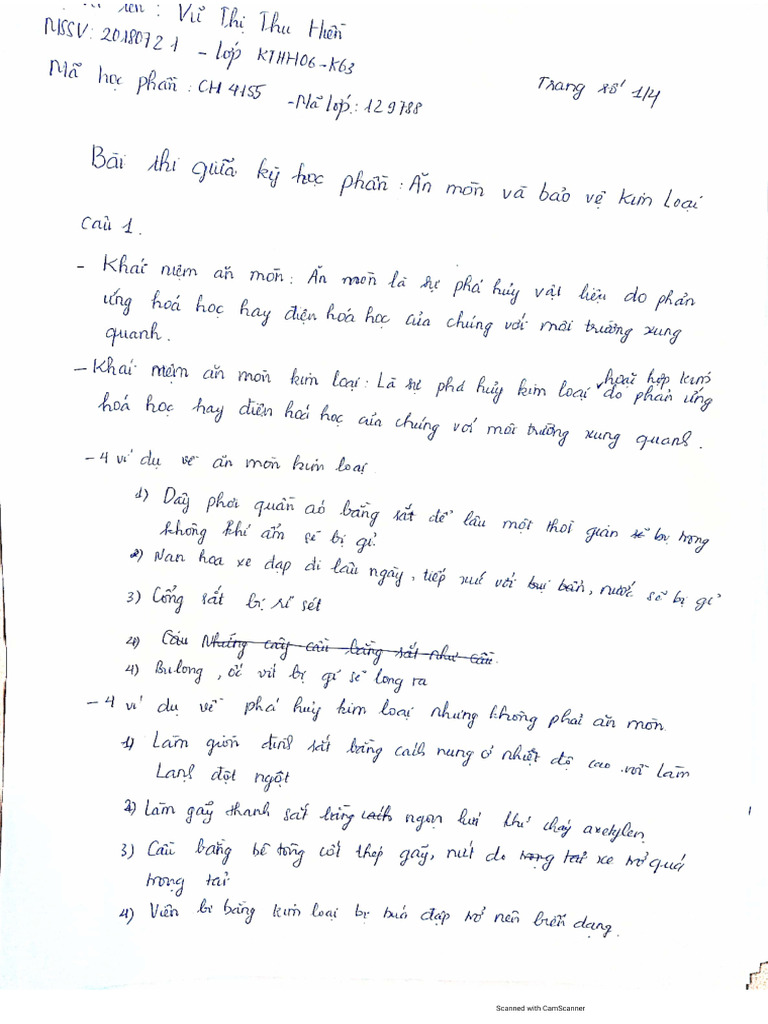 tên : Vũ Thị Thu Hiền
MSSV: 20180721 - lớp KTHH06-K63
Mã học phần : CH 4155 -Mã lớp: 129788
Trang số 1/4
Bài thi giữa kỳ học phần : Ăn mòn và bảo vệ kim loại
Câu 1.
- Khái niệm ăn mòn : Ăn mòn là sự phá hủy vật liệu do phản
ứng hoá học hay điện hoá học của chúng với môi trường xung
quanh.
- Khái niệm ăn mòn kim loại : Là sự phá hủy kim loại hoặc hợp kim do phản ứng
hoá học hay điện hoá học của chúng với môi trường xung quanh.
- 4 ví dụ về ăn mòn kim loại
1) Dây phơi quần áo bằng sắt để lâu một thời gian trong
không khí ẩm sẽ bị gỉ
2) Nan hoa xe đạp đi lâu ngày, tiếp xúc với bụi bẩn, nước sẽ bị gỉ
3) Cổng sắt bị rỉ sét
4) Cầu Những cây cầu bằng sắt như cầu
4) Bulong, ốc vít bị gỉ sẽ long ra
- 4 ví dụ về phá hủy kim loại nhưng không phải ăn mòn
1) Làm giòn đinh sắt bằng cách nung ở nhiệt độ cao rồi làm
Lạnh đột ngột
2) Làm gãy thanh sắt bằng cách ngọn lửa khí cháy axetylen
3) Cầu bằng bê tông cốt thép gãy, nứt do trọng tải xe trở quá
trọng tải
4) Viên bi bằng kim loại bị búa đập trở nên biến dạng.
Scanned with CamScanner